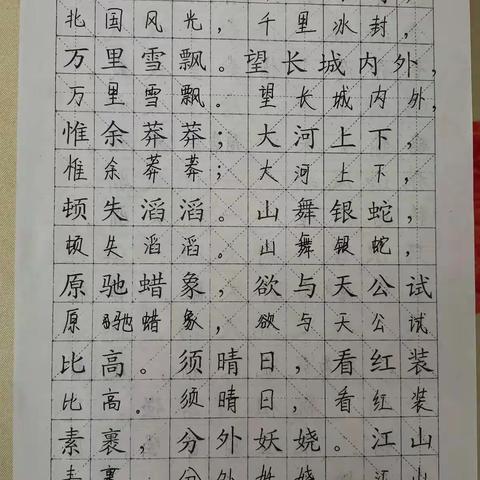 北国风光，千里冰封，
万里雪飘。望长城内外，
万里雪飘。望长城内外，
惟余莽莽；大河上下，
惟余莽莽；大河上下，
顿失滔滔。山舞银蛇，
顿失滔滔。山舞银蛇，
原驰蜡象，欲与天公试
原驰蜡象，欲与天公试
比高。须晴日，看红装
比高。须晴日，看红装
素裹，分外妖娆。江山
素裹，分外妖娆。江山